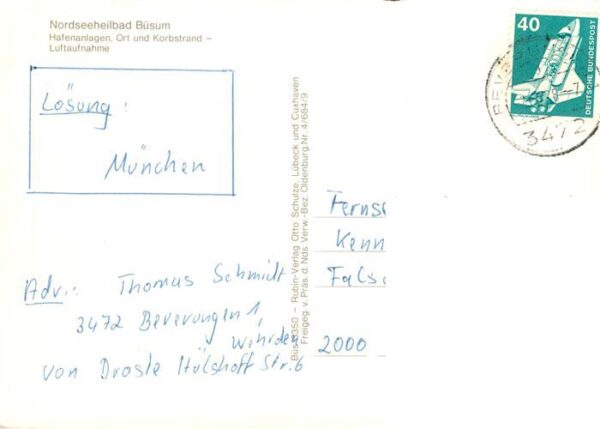 Nordseeheilbad Büsum
Hafenanlagen, Ort und Korbstrand –
Luftaufnahme
Lösung:
München
Adr.: Thomas Schmidt
3472 Beverungen 1,
Wehrden
von Droste Hülshoff Str. 6
Büs 9350 – Rubin-Verlag Otto Schulze, Lübeck und Cuxhaven
Freigeg. v. Präs. d. Nds. Verw.-Bez. Oldenburg Nr. 4/684/9
40
DEUTSCHE BUNDESPOST
3472
Ferns
Kenn
Falsc
2000